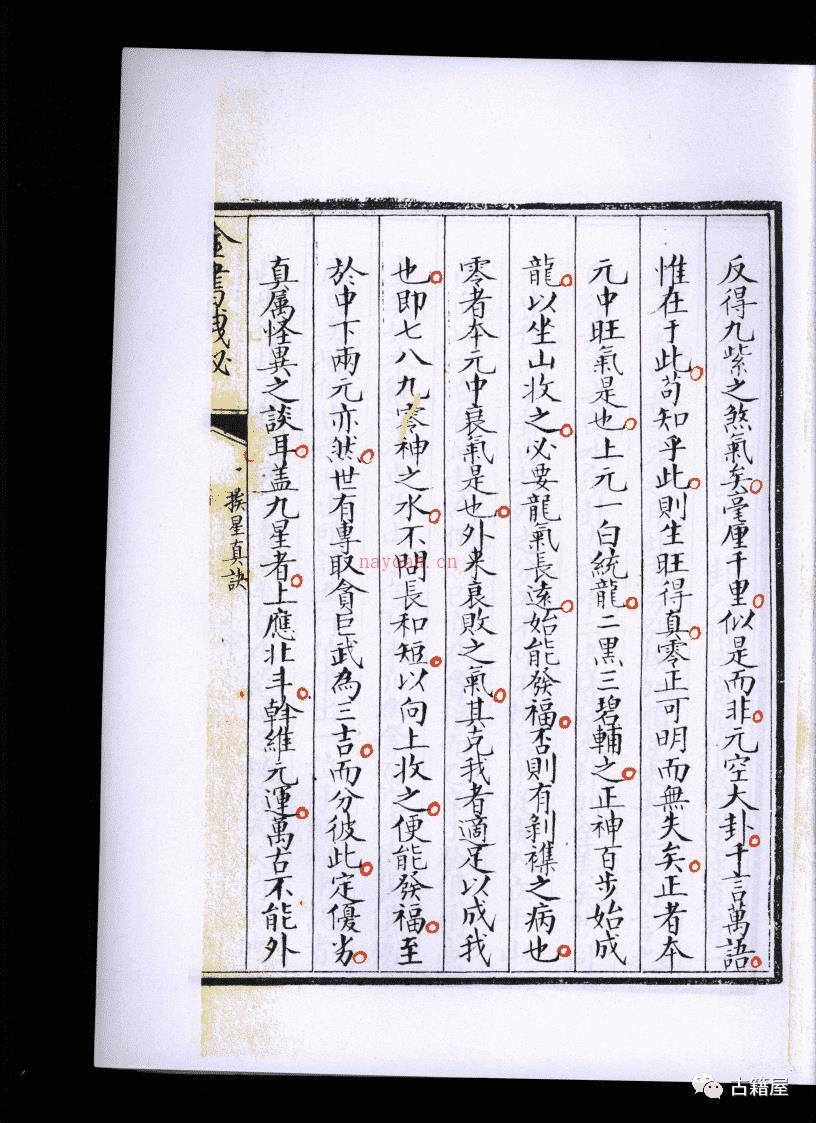 反得九紫之煞氣矣毫厘千里似是而非元空大卦千言萬語
惟在于此苟知乎此則生旺得真零正可明而無失矣正者本
元中旺氣是也上元一白統龍二黑三碧輔之正神百步始成
龍以坐山收之必要龍氣長遠始能發福否則有剝襍之病也
零者本元中衰氣是也外来衰敗之氣其克我者適足以成我
也即七八九零神之水不問長和短以向上收之便能發福至
於中下兩元亦然世有專取貪巨武為三吉而分彼此定優劣
真属怪異之談耳盖九星者上應北斗斡維元運萬古不能外
挨星真訣
nayona.cn
古籍屋